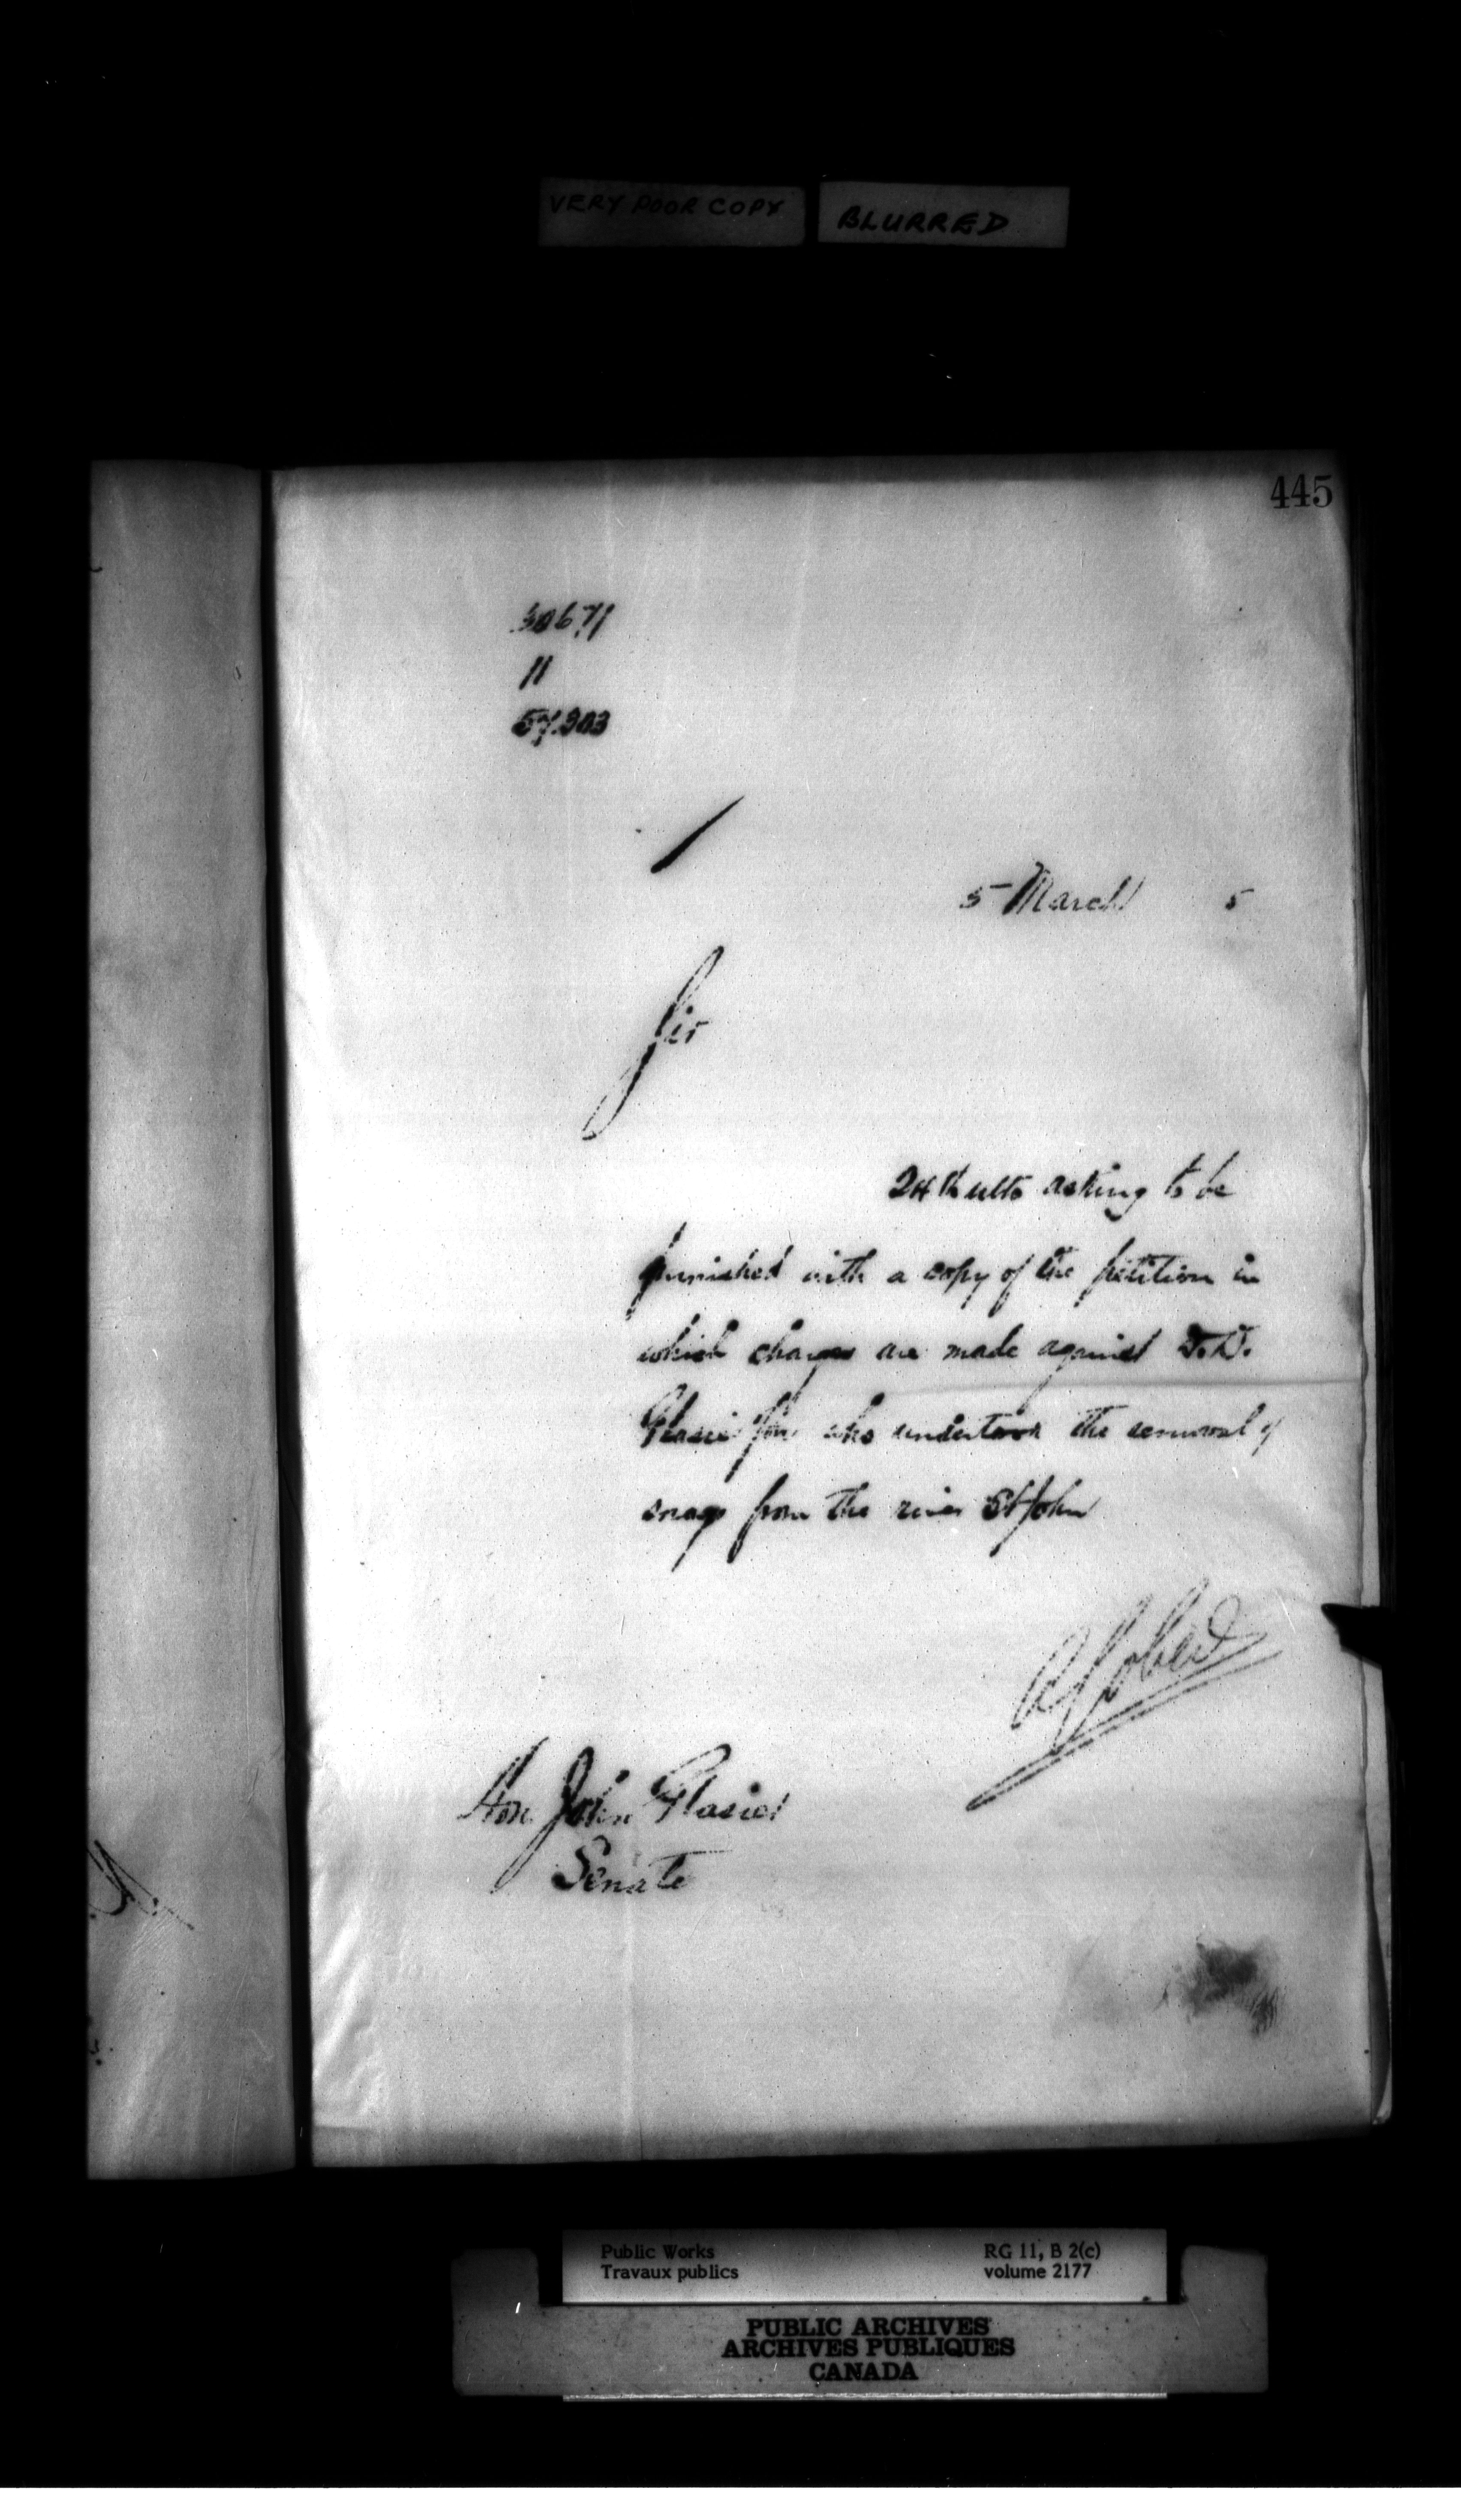 VERY POOR COPY
BLURRED
445
30671
11
57303
5 March 5
Sir
24th ulto asking to be
furnished with a copy of the petition in
which charges are made against D.D.
Glasier for who undertook the removal of
snags from the river St John
Hon. John Glasier
Senate
Public Works
Travaux publics
RG 11, B 2(c)
volume 2177
PUBLIC ARCHIVES
ARCHIVES PUBLIQUES
CANADA